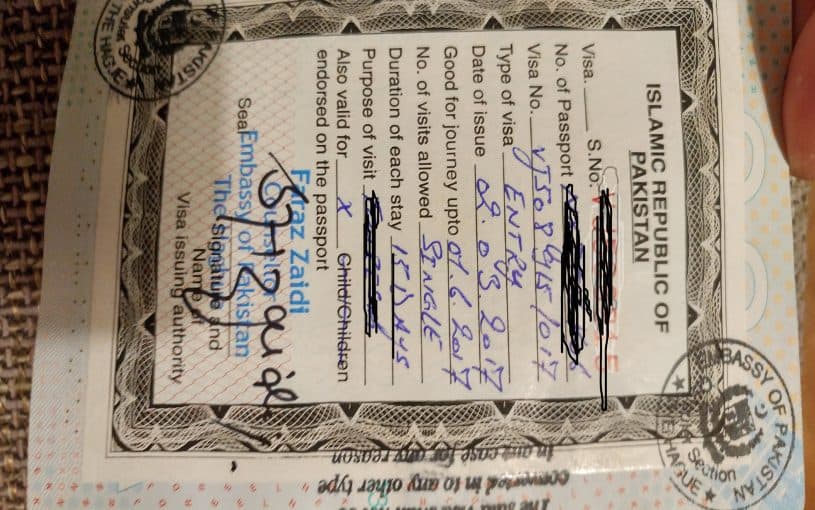 ISLAMIC REPUBLIC OF
PAKISTAN
Visa. S.No.
No. of Passport
Visa No.
Type of visa ENTRY
Date of issue 02.05.2017
Good for journey upto 01.6.2017
No. of visits allowed SINGLE
Duration of each stay 15 DAYS
Purpose of visit
Also valid for X Child/Children
endorsed on the passport
Faraz Zaidi
Counsellor
Embassy of Pakistan
The
Seal
The signature and
Name of
Visa issuing authority
EMBASSY OF PAKISTAN
Section
HAGUE
Consular Section
THE HAGUE
In any case for any reason
converted in to any other type